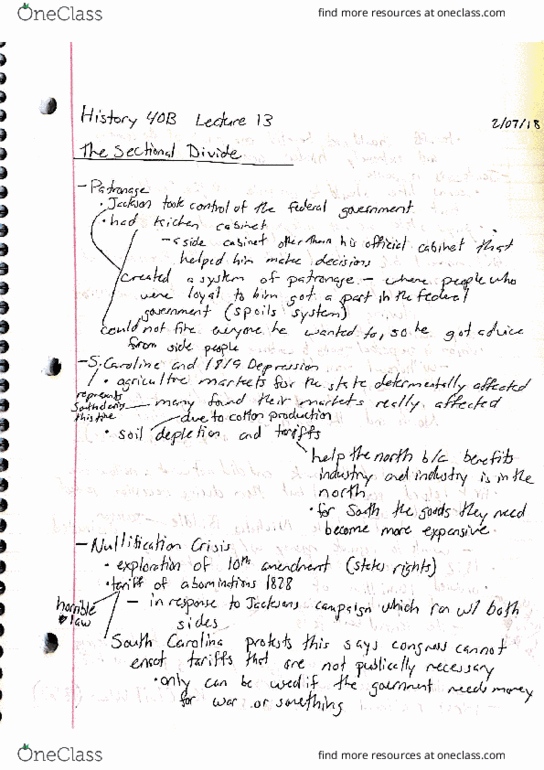 OneClass
find more resources at oneclass.com
History 40B Lecture 13
2/07/18
The Sectional Divide
- Patronage
• Jackson took control of the federal government
• had kichen cabinet
- a side cabinet other than his official cabinet that
helped him make decisions
created a system of patronage - where people who
were loyal to him got a part in the federal
government (spoils system)
could not fire everyone he wanted to, so he got advice
from side people
- S. Carolina and 1819 Depression
• agricultre markets for the state determentally affected
represents
South during
this time
many found their markets really affected
due to cotton production
• soil depletion and tariffs
help the north b/c benefits
industry and industry is in the
north
• for South the goods they need
become more expensive
- Nullification Crisis
• exploration of 10th amendment (states rights)
• tariff of abominations 1828
horrible
law
- in response to Jacksons campaign which ran w/ both
sides
South Carolina protests this says congress cannot
enact tariffs that are not publically necessary
• only can be used if the government needs money
for war or something
OneClass
find more resources at oneclass.com